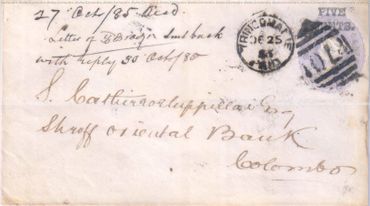 27 Oct/85 Recd
Letter of Sent back
with reply 30 Oct/85
FIVE
CENTS.
TRINCOMALIE
OC 25
85
S. Cathiravaluppillai Esq
Shroff Oriental Bank
Colombo